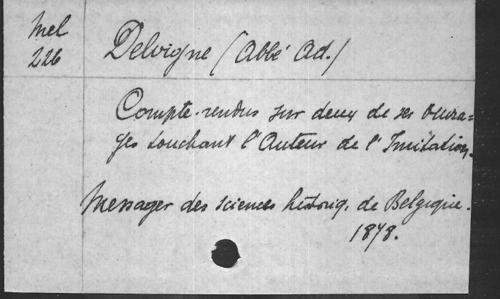 Mel
226
Delvigne (Abbé Ad.)
Compte-rendus sur deux de ses ouvra=
ges touchant l'Auteur de l'Imitation.
Messager des sciences historiq. de Belgique.
1878.